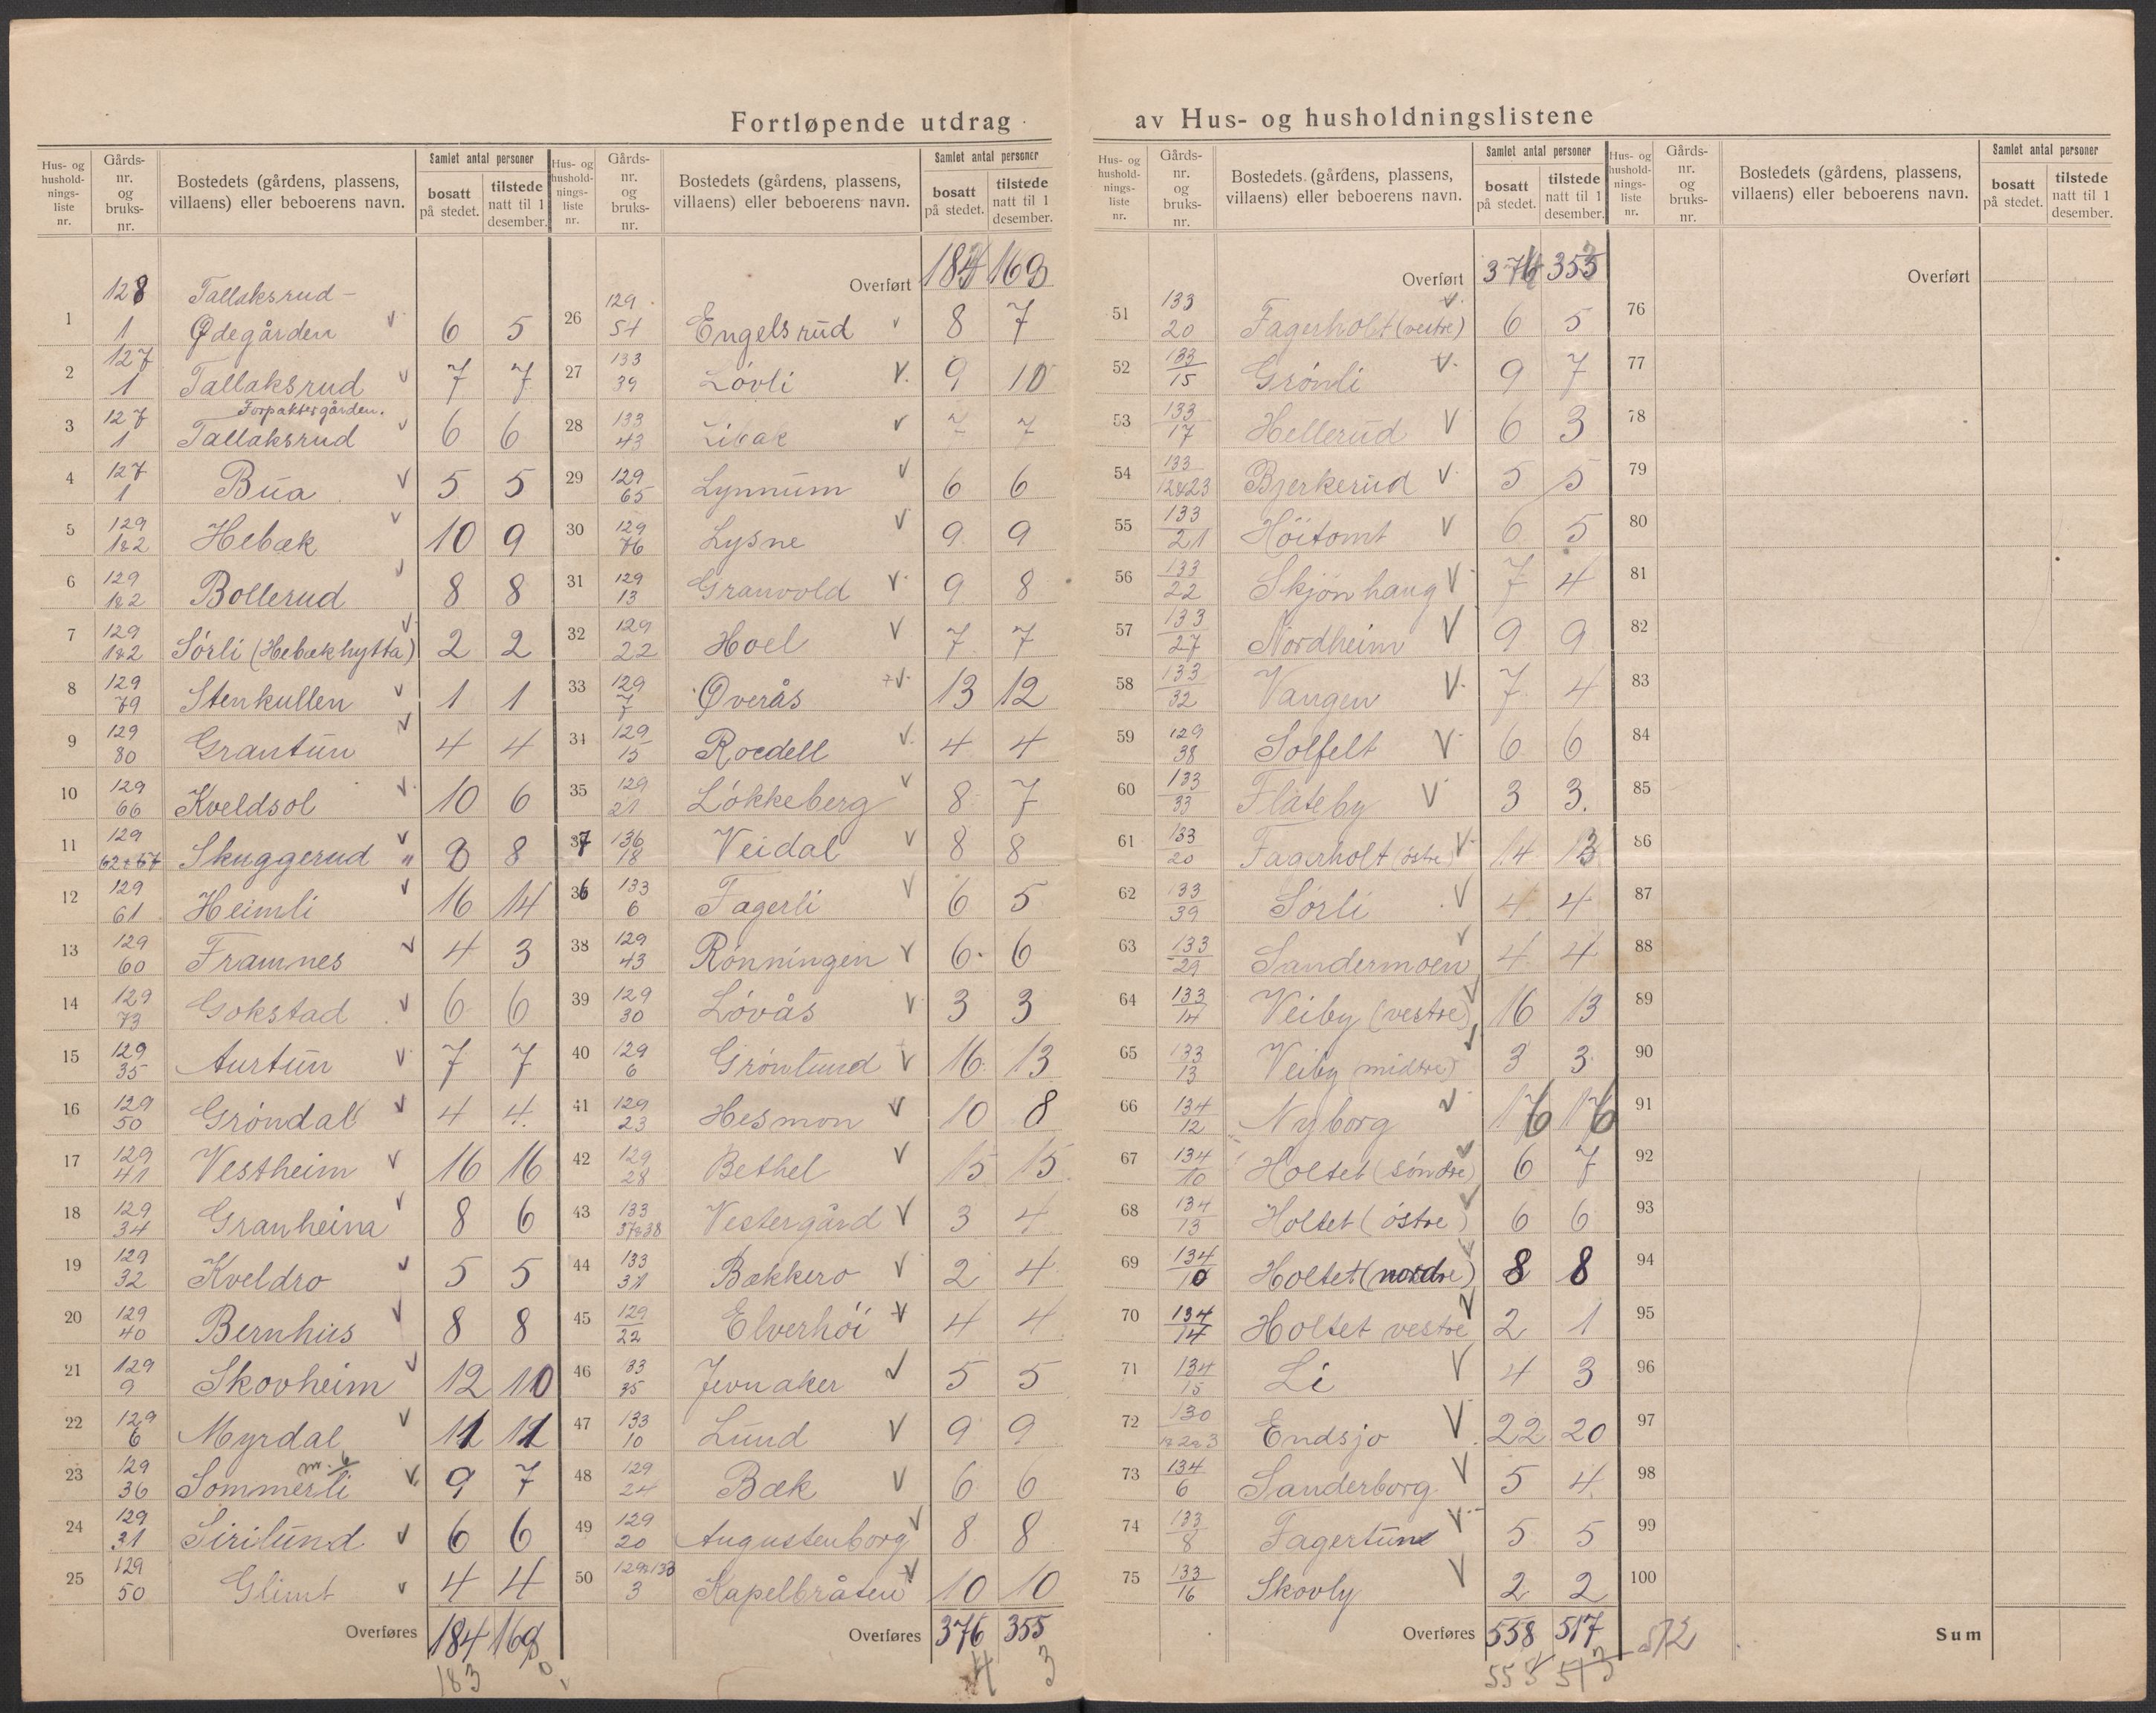 Fortløpende utdrag av Hus- og husholdningslistene
Hus- og husholdningsliste nr. | Gårds-nr. og bruks-nr. | Bostedets (gårdens, plassens, villaens) eller beboerens navn. | Samlet antal personer | bosatt på stedet. | tilstede natt til 1 desember.
1 128/1 Tallaksrud - Ødegården v 6 5
2 127/1 Tallaksrud v 7 7
3 127/1 Tallaksrud Forpaktergården. v 6 6
4 127/1 Bua v 5 5
5 129/1&2 Hebæk v 10 9
6 129/1&2 Bollerud v 8 8
7 129/1&2 Sörli (Hebækhytta) v 2 2
8 129/79 Stenkullen v 1 1
9 129/80 Grantun v 4 4
10 129/66 Kveldsol v 10 6
11 129/62&57 Skuggerud v " 8 8
12 129/61 Heimli v 16 14
13 129/60 Framnes v 4 3
14 129/73 Gokstad v 6 6
15 129/35 Aurtun v 7 7
16 129/50 Gröndal v 4 4
17 129/41 Vestheim v 16 16
18 129/34 Granheim v 8 6
19 129/32 Kveldro v 5 5
20 129/40 Bernhus v 8 8
21 129/9 Skovheim v 12 10
22 129/6 Myrdal v 11 11
23 129/36 Sommerli v 9 7
24 129/31 Sirilund v 6 6
25 129/50 Glimt v 4 4
Overføres 184 169
183
Hus- og husholdningsliste nr. | Gårds-nr. og bruks-nr. | Bostedets (gårdens, plassens, villaens) eller beboerens navn. | Samlet antal personer | bosatt på stedet. | tilstede natt til 1 desember.
Overført 184 169
26 129/54 Engelsrud v 8 7
27 133/39 Lövli v. 9 10
28 133/43 Libak v 7 7
29 129/65 Lynnum v 6 6
30 129/76 Lysne v 9 9
31 129/13 Granvold v 9 8
32 129/22 Hoel v 7 7
33 129/7 Øverås v 13 12
34 129/15 Roedell v. 4 4
35 129/21 Lökkeberg v 8 7
37 136/18 Veidal v 8 8
36 133/6 Fagerli v 6 5
38 129/43 Rönningen v 6 6
39 129/30 Lövås v 3 3
40 129/6 Grönlund v 16 13
41 129/23 Hesmon v 10 8
42 129/28 Bethel v 15 15
43 133/37&38 Vestergård v 3 4
44 133/31 Bækkero v 2 4
45 129/22 Elverhöi v 4 4
46 33/35 Jevnaker v 5 5
47 133/10 Lund v 9 9
48 129/24 Bæk v 6 6
49 129/20 Augustenborg v 8 8
50 129&133/3 Kapelbråten v 10 10
Overføres 376 355
4 3
Hus- og husholdningsliste nr. | Gårds-nr. og bruks-nr. | Bostedets (gårdens, plassens, villaens) eller beboerens navn. | Samlet antal personer | bosatt på stedet. | tilstede natt til 1 desember.
Overført 376 355
51 133/20 Fagerholt (vestre) v. 6 5
52 133/15 Grönli v. 9 7
53 133/17 Hellerud v 6 3
54 133/12&23 Bjerkerud v 5 5
55 133/21 Höitomt v 6 5
56 133/22 Skjönhaug v 7 4
57 133/27 Nordheim v 9 9
58 133/32 Vangen v. 7 4
59 129/38 Solfelt v 6 6
60 133/33 Flateby v 3 3.
61 133/20 Fagerholt (östre) v 14 13
62 133/39 Sörli v 4 4
63 133/29 Sandermoen v 4 4
64 133/14 Veiby (vestre) v 16 13
65 133/13 Veiby (midtre) v 3 3
66 134/12 Nyborg v 16 16
67 134/10 Holtet (söndre) v 6 7
68 134/13 Holtet (östre) v 6 6
69 134/10 Holtet (nordre) v 8 8
70 134/14 Holtet vestre v 2 1
71 134/15 Li v 4 3
72 130/1&2&3 Endsjo v 22 20
73 134/6 Sanderborg v 5 4
74 133/8 Fagertun v 5 5
75 133/16 Skovly v 2 2
Overføres 558 517 512
555 513
Hus- og husholdningsliste nr. | Gårds-nr. og bruks-nr. | Bostedets (gårdens, plassens, villaens) eller beboerens navn. | Samlet antal personer | bosatt på stedet. | tilstede natt til 1 desember.
Overført
76
77
78
79
80
81
82
83
84
85
86
87
88
89
90
91
92
93
94
95
96
97
98
99
100
Sum